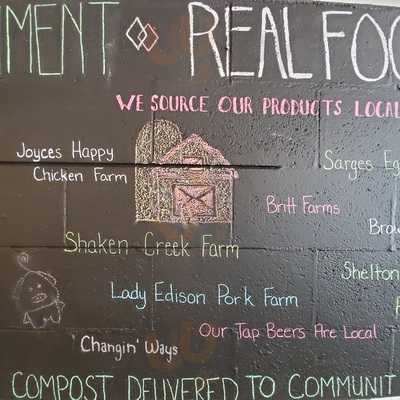 NMENT ◇ REAL FOO
WE SOURCE OUR PRODUCTS LOCAL
Joyces Happy
Chicken Farm
Sarges Eg
Britt Farms
Brow
Shaken Creek Farm
Shelton
Lady Edison Pork Farm
Our Tap Beers Are Local
'Changin' Ways
COMPOST DELIVERED TO COMMUNIT